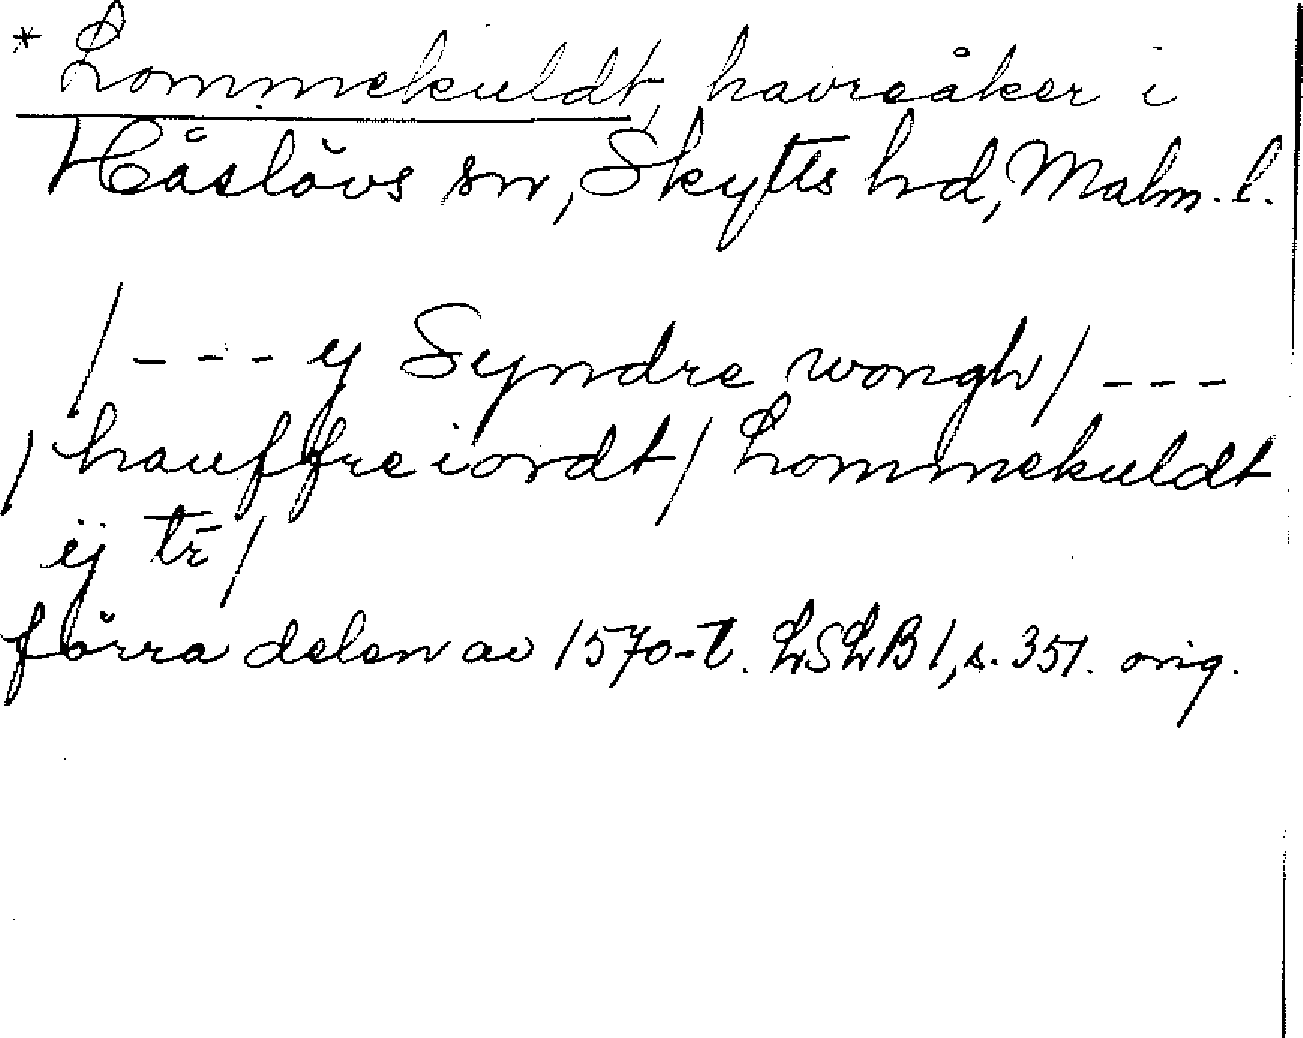 * Lommekuldt, havreåker i
Håslövs sn, Skytts hd, Malm. l.
/ - - - ij Syndre wongh / - - -
/ hauffreiordt / Lommekuldt
ij tr̄ /
förra delen av 1570-t. LSLB 1, s. 351. orig.